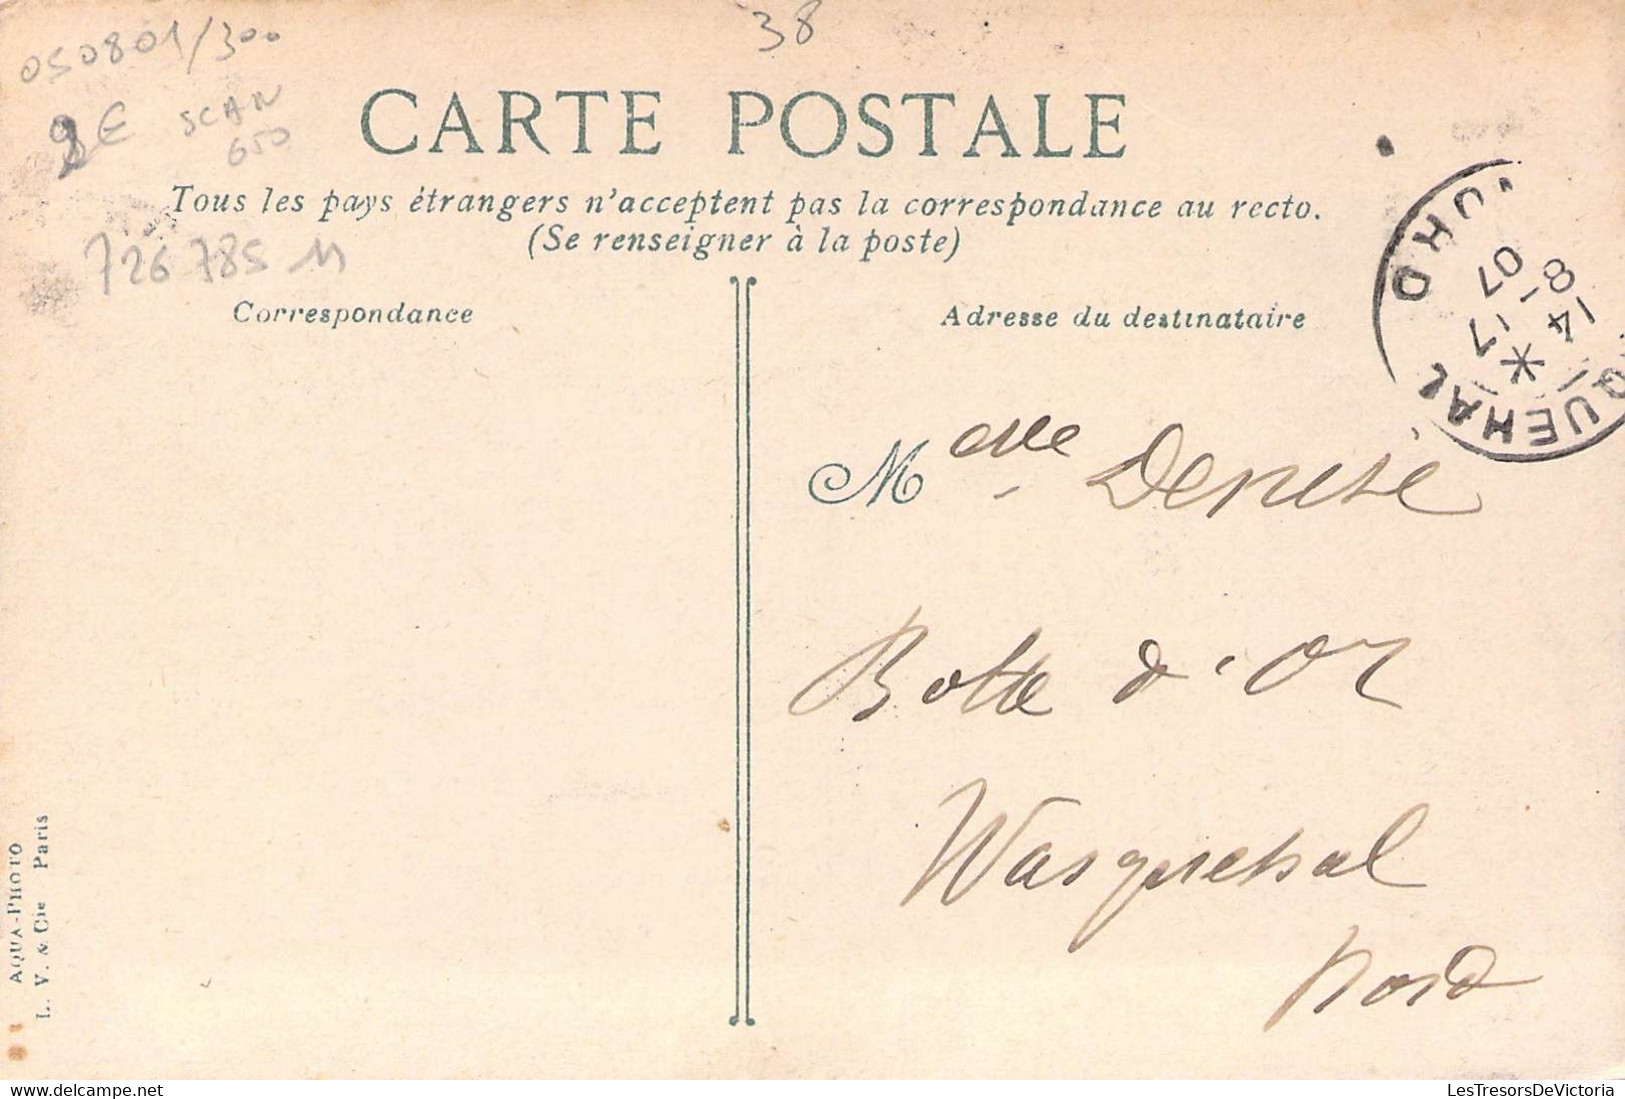 38
050801/300
2€ SCAN
650
CARTE POSTALE
Tous les pays étrangers n'acceptent pas la correspondance au recto.
(Se renseigner à la poste)
726 785 11
Correspondance
Adresse du destinataire
QUEHAL
NORD
17
14 -8
07
M elle Denise
Botte d'Or
Wasquehal
Nord
AQUA-PHOTO
L. V. & Cie Paris
LesTresorsDeVictoria